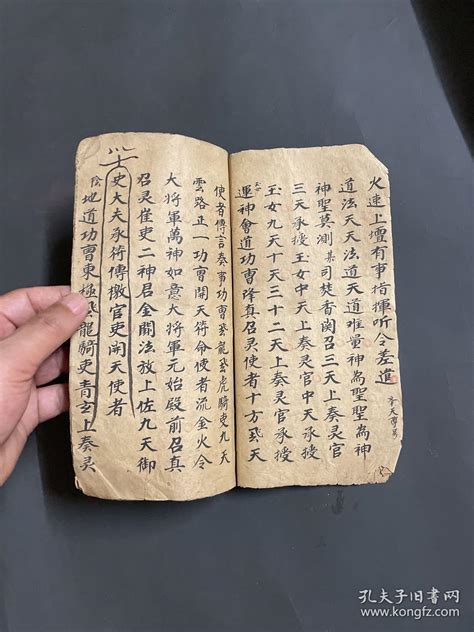 火速上壇有事指揮听令差進
道法天天法道天道唯量神為聖聖為神
神聖莫測某司焚香関召三天上奏灵官
三天承授玉女中天上奏灵官承授
玉女九天十天三十二天上奏灵官承授
運神會道功曹降真召灵使者十方飛天
使者傳言奏事功曹飛龍飛虎騎吏九天
雲路正一功曹開天符命使者流金火令
大將軍萬神如意大將軍元始殿前召真
召灵催吏二神君金闕法放上佐九天御
史大夫承符傳檄官吏開天使者
陰地道功曹東極飛龍騎吏青玄上奏灵
孔夫子旧書网
www.kongfz.com